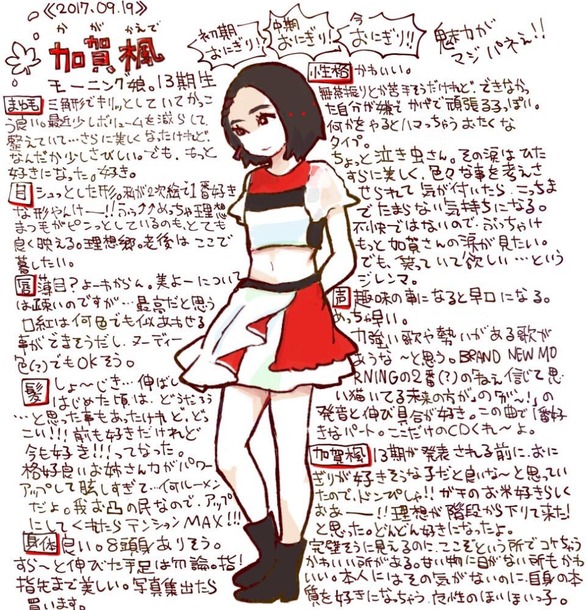 《2017.09.19》
かがかえで
加賀楓
モーニング娘。13期生
初期
おにぎり!!
中期
おにぎり!!
今
おにぎり!!
魅力が
マジパネぇ!!
まゆも 三角形でキリッとしていてかっこ
う良い。最近少しボリュームを減らして
整えていて…さらに美しくなったけれど、
なんだか少しさびしい。でも、もっと
好きになった。好き。
目 シュッとした形。私が2次絵で1番好き
な形やんけー!!ふぅっ↑↑めっちゃ理想
まつもがピンッとしているのもとても
良く映える。理想郷。老後はここで
暮したい。
唇 薄目?よーわからん。美よーについて
は疎いのですが…最高だと思う
口紅は何色でも似あわせる
事ができそうだし、ヌーディー
色(?)でもOKそう。
髪 しょーじき…伸ばし
はじめた頃は、どうだろう
…と思った事もあったけれど、どっ
こい!!!前も好きだけれど
今も好き!!!ってなった。
格好良いお姉さん力がパワー
アップして眩しすぎて…何ルーメン
だよ。我お凸の民なので、アップ
にしてくれたらテンションMAX!!!
身体 良い。8頭身ありそう。
すらーと伸びた手足は勿論。指!
指先まで美しい。写真集出たら
買います。
性格 かわいい。
無茶振りとか苦手そうだけれど、できなかっ
た自分が嫌で かげで頑張るるっぽい。
何かをやるとハマっちゃうおたくな
タイプ。
ちょっと泣き虫さん。その涙はひた
すらに美しく、色々な事を考えさ
せられて気が付いたら、こっちま
でたまらない気持ちになる。
不快ではないので、ぶっちゃけ
もっと加賀さんの涙が見たい。
でも、笑っていて欲しい…という
ジレンマ。
声 趣味の事になると早口になる。
めっちゃ早い。
力強い歌や勢いがある歌が
あうな〜と思う。BRAND NEW MO
RNINGの2番(?)の「ねぇ信じて思
い描いてる未来の方が」の「がっん!」の
発音と伸び具合が好き。この曲で1番好
きなパート。ここだけのCDくれ〜よ。
加賀楓 13期が発表される前に、おに
ぎりが好きそうな子だと良いな〜と思ってい
たので、ドンぴしゃ!!ガチのお米好きらしく
おあーーー!!理想が階段から下りて来た!
と思った。どんどん好きになったよ。
完璧そうに見えるのに、ここぞという所でコケちゃう
かわいい所がある。甘い物に目がない所もかわ
いい。本人にはその気がないのに、自身の本
質を好きになっちゃう、だ性のほいほいっ子。